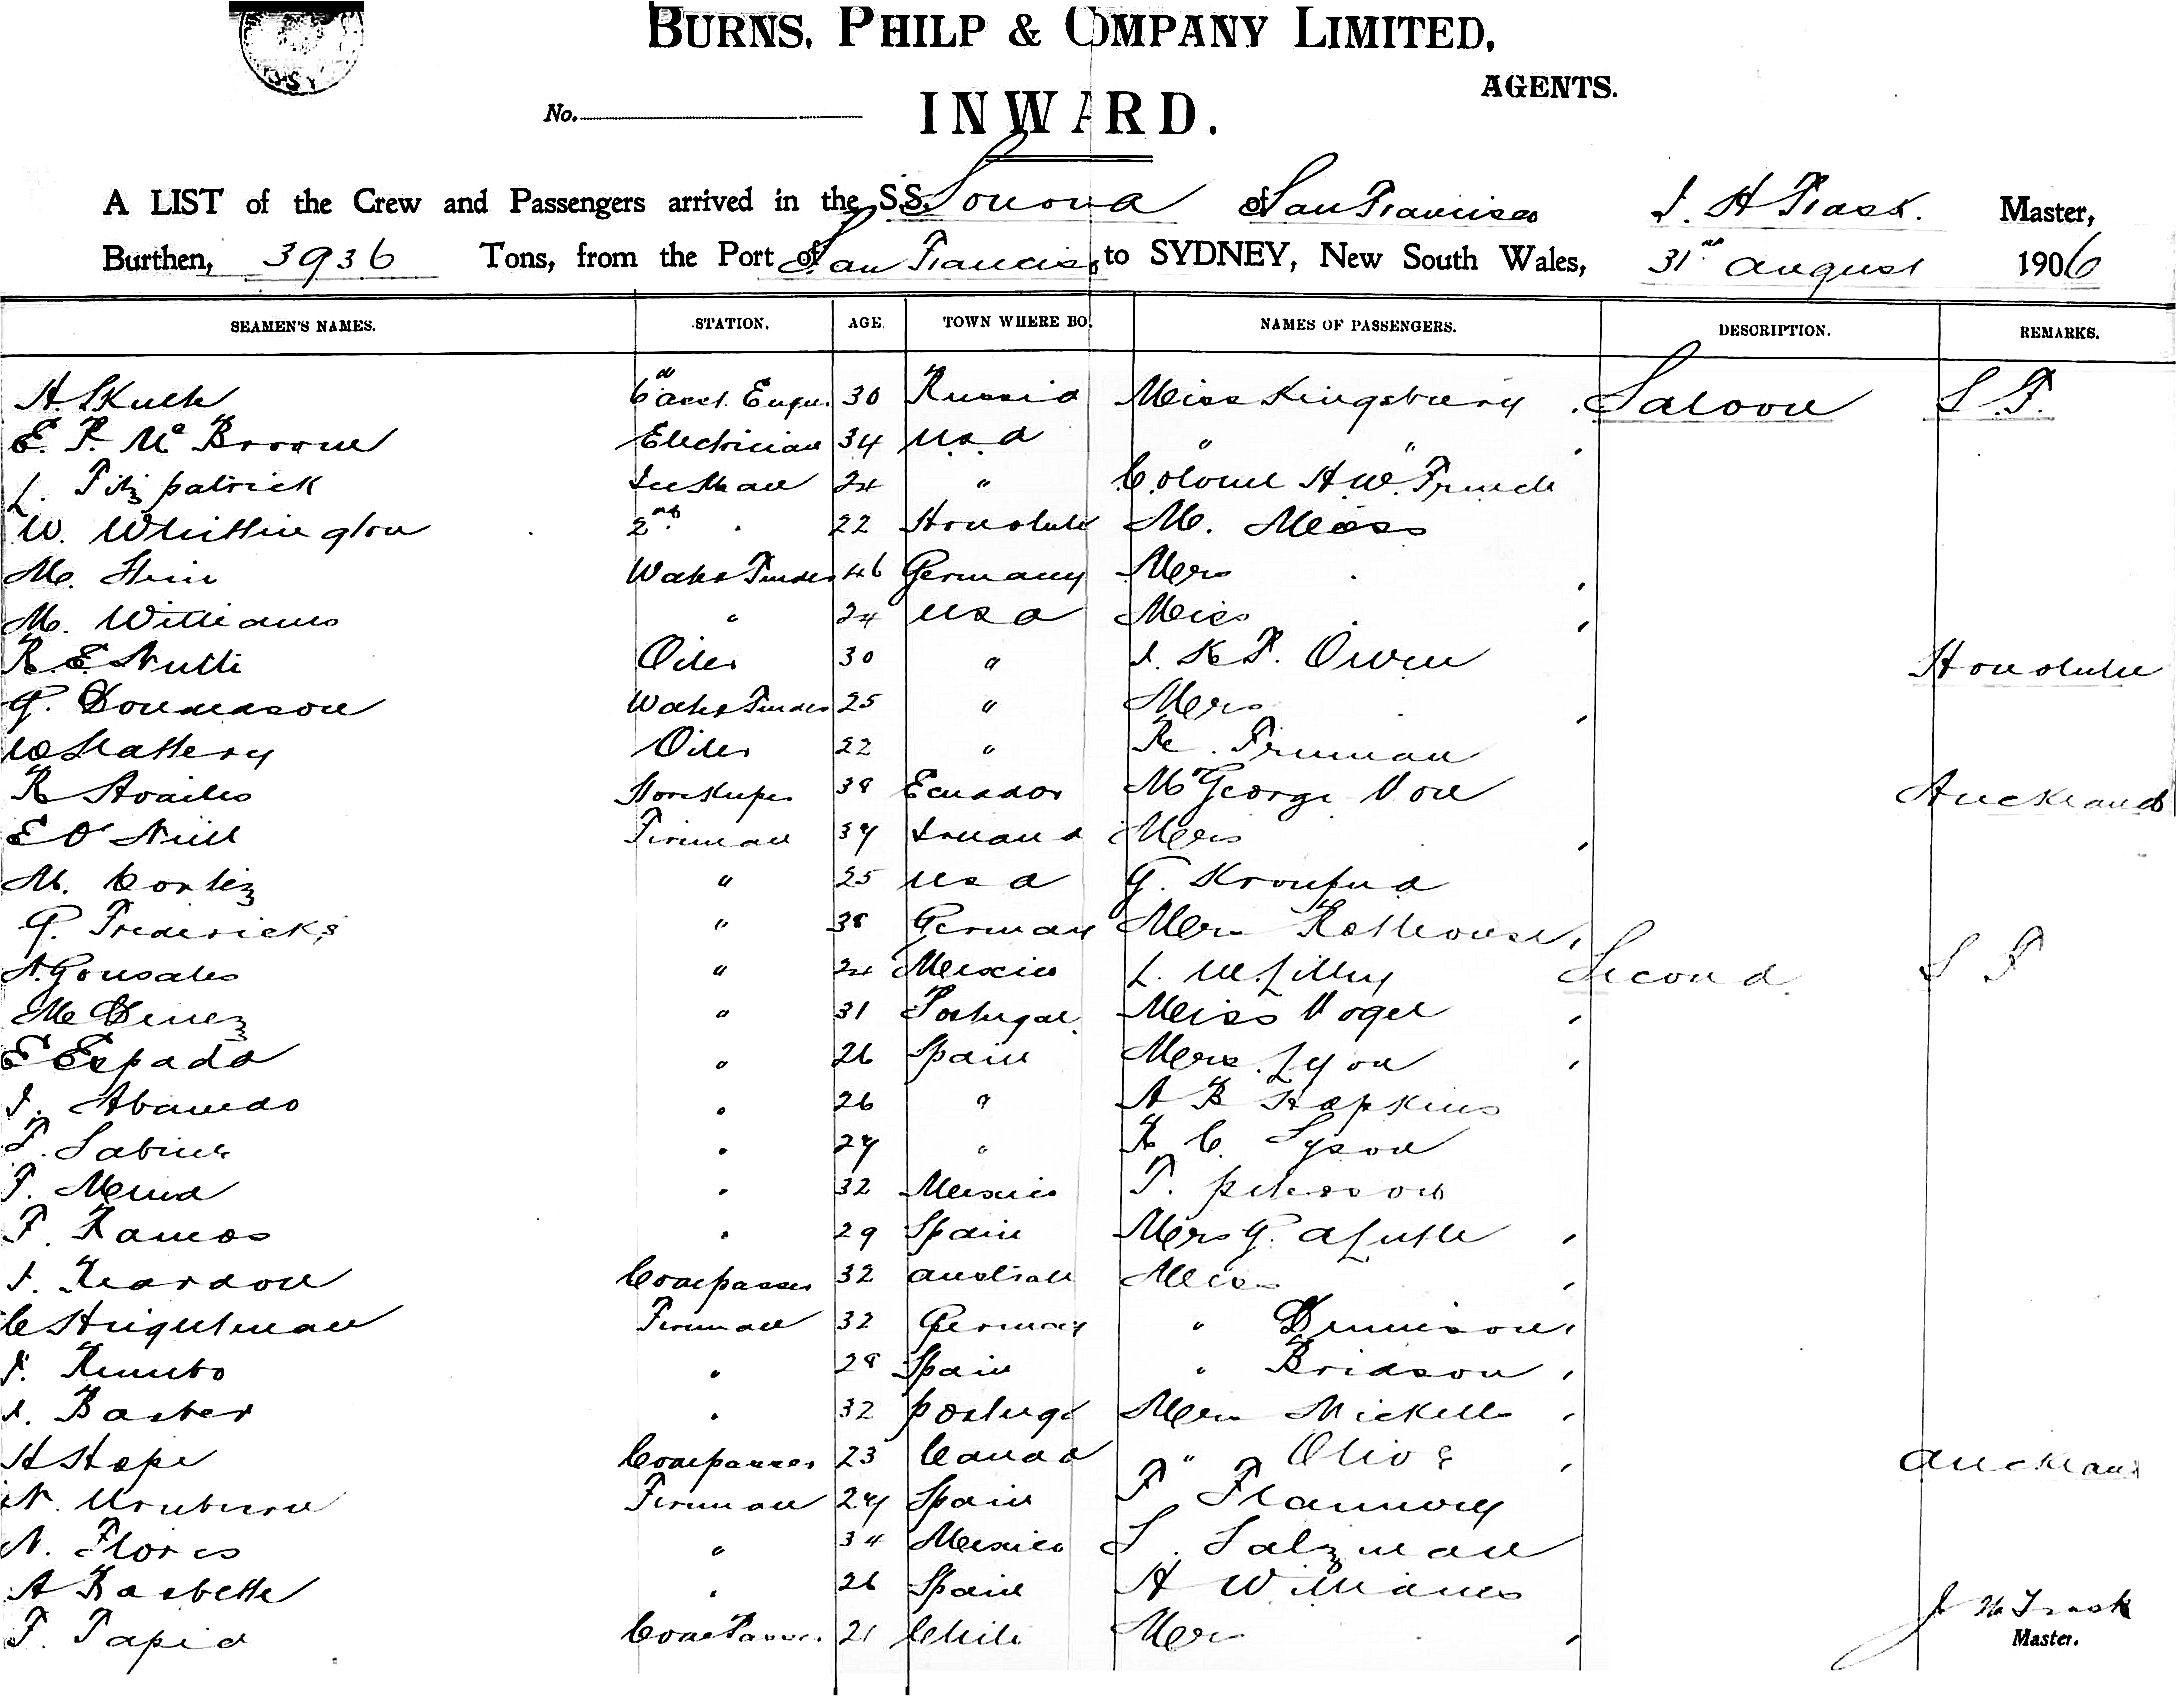 BURNS, PHILP & COMPANY LIMITED,
AGENTS.
No.
INWARD.
A LIST of the Crew and Passengers arrived in the S.S. Sonoma of San Francisco J. H. Trask. Master,
Burthen, 3936 Tons, from the Port of San Francisco to SYDNEY, New South Wales, 31st August 1906
SEAMEN'S NAMES. STATION. AGE. TOWN WHERE BO. NAMES OF PASSENGERS. DESCRIPTION. REMARKS.
H. Engr. 30 Russia Miss Kingsbury Saloon S F.
E. P. Mc Electrician 34 U S A " "
L. Fitzpatrick 24 " Colonel H W. French
W. Whittington 2nd " 22 Honolulu M. Moss
M. Water Tender 46 Germany Mrs "
M. Williams " 24 U S A Miss "
R. E. Oiler 30 " J. K F. Owen Honolulu
G. Donaldson Water Tender 25 " Mrs "
W Slattery Oiler 22 " R. Freeman
R Storekeeper 38 Ecuador Mr George Vou Auckland
E O'Neill Fireman 37 Ireland Mrs "
M. Cortez " 25 U S A G.
G. Fredericks " 38 Germany Mrs
A. Gonsales " 24 Mexico L. Second S F
M " 31 Portugal Miss Vogel
E Espada " 26 Spain Mrs. Lyon
J. " 26 " A B Hopkins
F. " 27 " C. Tyson
F. " 32 Mexico T. Peterson
F. Ramos " 29 Spain Mrs G.
J. Reardon Coalpasser 32 Australia Miss "
C Fireman 32 Germany " Dennison
" 28 Spain " Bridson
J. " 32 Portugal Mrs
H Hope Coalpasser 23 Canada " Auckland
N. Fireman 27 Spain F Flannery
N. Flores " 34 Mexico S. Salzman
A " 26 Spain H Williams
F. Tapia Coal Passer 21 Chile Mrs "
J H Trask
Master.